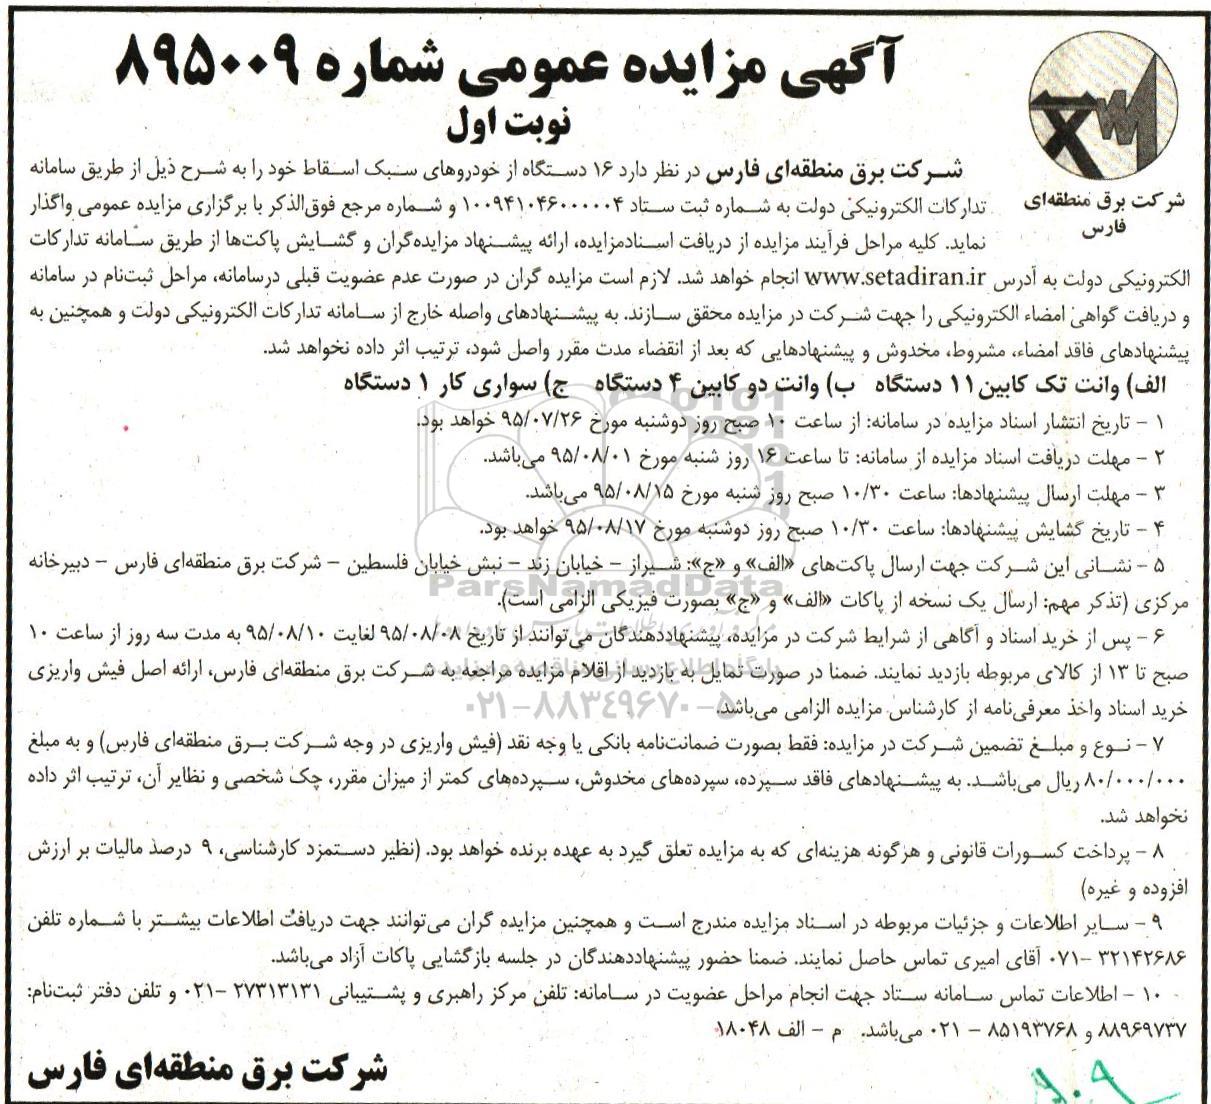 آگهی مزایده عمومی شماره ۸۹۵۰۰۹
نوبت اول
شرکت برق منطقه‌ای
فارس
شرکت برق منطقه‌ای فارس در نظر دارد ۱۶ دستگاه از خودروهای سبک اسقاط خود را به شرح ذیل از طریق سامانه
تدارکات الکترونیکی دولت به شماره ثبت ستاد ۱۰۰۹۴۱۰۴۶۰۰۰۰۰۴ و شماره مرجع فوق‌الذکر با برگزاری مزایده عمومی واگذار
نماید. کلیه مراحل فرآیند مزایده از دریافت اسنادمزایده، ارائه پیشنهاد مزایده‌گران و گشایش پاکت‌ها از طریق سامانه تدارکات
الکترونیکی دولت به آدرس www.setadiran.ir انجام خواهد شد. لازم است مزایده گران در صورت عدم عضویت قبلی درسامانه، مراحل ثبت‌نام در سامانه
و دریافت گواهی امضاء الکترونیکی را جهت شرکت در مزایده محقق سازند. به پیشنهادهای واصله خارج از سامانه تدارکات الکترونیکی دولت و همچنین به
پیشنهادهای فاقد امضاء، مشروط، مخدوش و پیشنهادهایی که بعد از انقضاء مدت مقرر واصل شود، ترتیب اثر داده نخواهد شد.
الف) وانت تک کابین۱۱ دستگاه ب) وانت دو کابین ۴ دستگاه ج) سواری کار ۱ دستگاه
۱ - تاریخ انتشار اسناد مزایده در سامانه: از ساعت ۱۰ صبح روز دوشنبه مورخ ۹۵/۰۷/۲۶ خواهد بود.
۲ - مهلت دریافت اسناد مزایده از سامانه: تا ساعت ۱۶ روز شنبه مورخ ۹۵/۰۸/۰۱ می‌باشد.
۳ - مهلت ارسال پیشنهادها: ساعت ۱۰/۳۰ صبح روز شنبه مورخ ۹۵/۰۸/۱۵ می‌باشد.
۴ - تاریخ گشایش پیشنهادها: ساعت ۱۰/۳۰ صبح روز دوشنبه مورخ ۹۵/۰۸/۱۷ خواهد بود.
۵ - نشانی این شرکت جهت ارسال پاکت‌های «الف» و «ج»: شیراز - خیابان زند - نبش خیابان فلسطین - شرکت برق منطقه‌ای فارس - دبیرخانه
ParsNamadData
مرکزی (تذکر مهم: ارسال یک نسخه از پاکات «الف» و «ج» بصورت فیزیکی الزامی است).
۶ - پس از خرید اسناد و آگاهی از شرایط شرکت در مزایده، پیشنهاددهندگان می‌توانند از تاریخ ۹۵/۰۸/۰۸ لغایت ۹۵/۰۸/۱۰ به مدت سه روز از ساعت ۱۰
صبح تا ۱۳ از کالای مربوطه بازدید نمایند. ضمنا در صورت تمایل به بازدید از اقلام مزایده مراجعه به شرکت برق منطقه‌ای فارس، ارائه اصل فیش واریزی
خرید اسناد واخذ معرفی‌نامه از کارشناس مزایده الزامی می‌باشد.
۰۲۱-۸۸۳۴۹۶۷۰-۵
۷ - نوع و مبلغ تضمین شرکت در مزایده: فقط بصورت ضمانت‌نامه بانکی یا وجه نقد (فیش واریزی در وجه شرکت برق منطقه‌ای فارس) و به مبلغ
۸۰/۰۰۰/۰۰۰ ریال می‌باشد. به پیشنهادهای فاقد سپرده، سپرده‌های مخدوش، سپرده‌های کمتر از میزان مقرر، چک شخصی و نظایر آن، ترتیب اثر داده
نخواهد شد.
۸ - پرداخت کسورات قانونی و هرگونه هزینه‌ای که به مزایده تعلق گیرد به عهده برنده خواهد بود. (نظیر دستمزد کارشناسی، ۹ درصد مالیات بر ارزش
افزوده و غیره)
۹ - سایر اطلاعات و جزئیات مربوطه در اسناد مزایده مندرج است و همچنین مزایده گران می‌توانند جهت دریافت اطلاعات بیشتر با شماره تلفن
۳۲۱۴۲۶۸۶ -۰۷۱ آقای امیری تماس حاصل نمایند. ضمنا حضور پیشنهاددهندگان در جلسه بازگشایی پاکات آزاد می‌باشد.
۱۰ - اطلاعات تماس سامانه ستاد جهت انجام مراحل عضویت در سامانه: تلفن مرکز راهبری و پشتیبانی ۲۷۳۱۳۱۳۱ -۰۲۱ و تلفن دفتر ثبت‌نام:
۸۸۹۶۹۷۳۷ و ۸۵۱۹۳۷۶۸ - ۰۲۱ می‌باشد. م - الف ۱۸۰۴۸
شرکت برق منطقه‌ای فارس